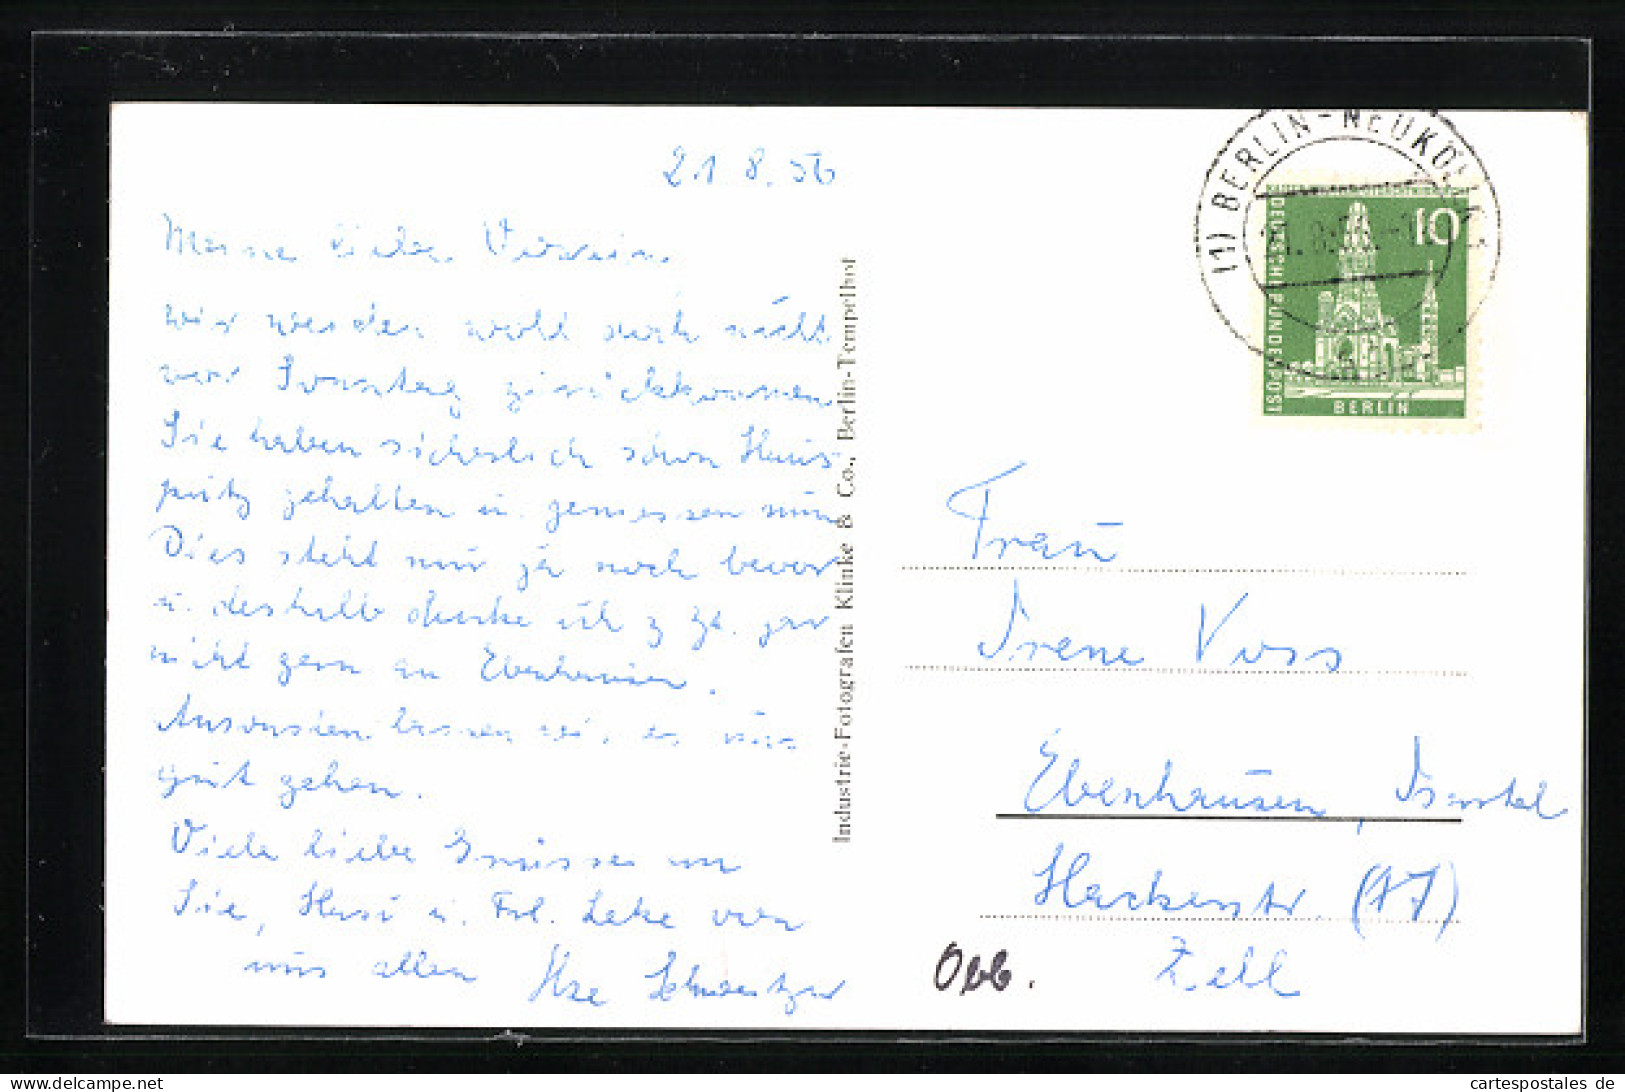 21 8. 56
Meine liebe
wir werden wohl noch nicht
vor Sonntag zurückkommen
Sie haben sicherlich schon Haus-
putz gehalten u. geniessen nun
Dies steht mir ja noch bevor
u. deshalb denke ich z Zt. gar
nicht gern an Ebenhausen.
Ansonsten lassen wir es uns
gut gehen.
Viele liebe Grüsse an
Sie, Hasi u. Frl. Leke von
uns allen Ilse Schweitzer
Industrie-Fotografen Klinke & Co., Berlin-Tempelhof
(1) BERLIN-NEUKÖLLN
10
DEUSCHE BUNDESPOST
BERLIN
Frau
Irene Voss
Ebenhausen, Isartal
Hackerstr. (17)
Zell
Obb.
cartespostales.de